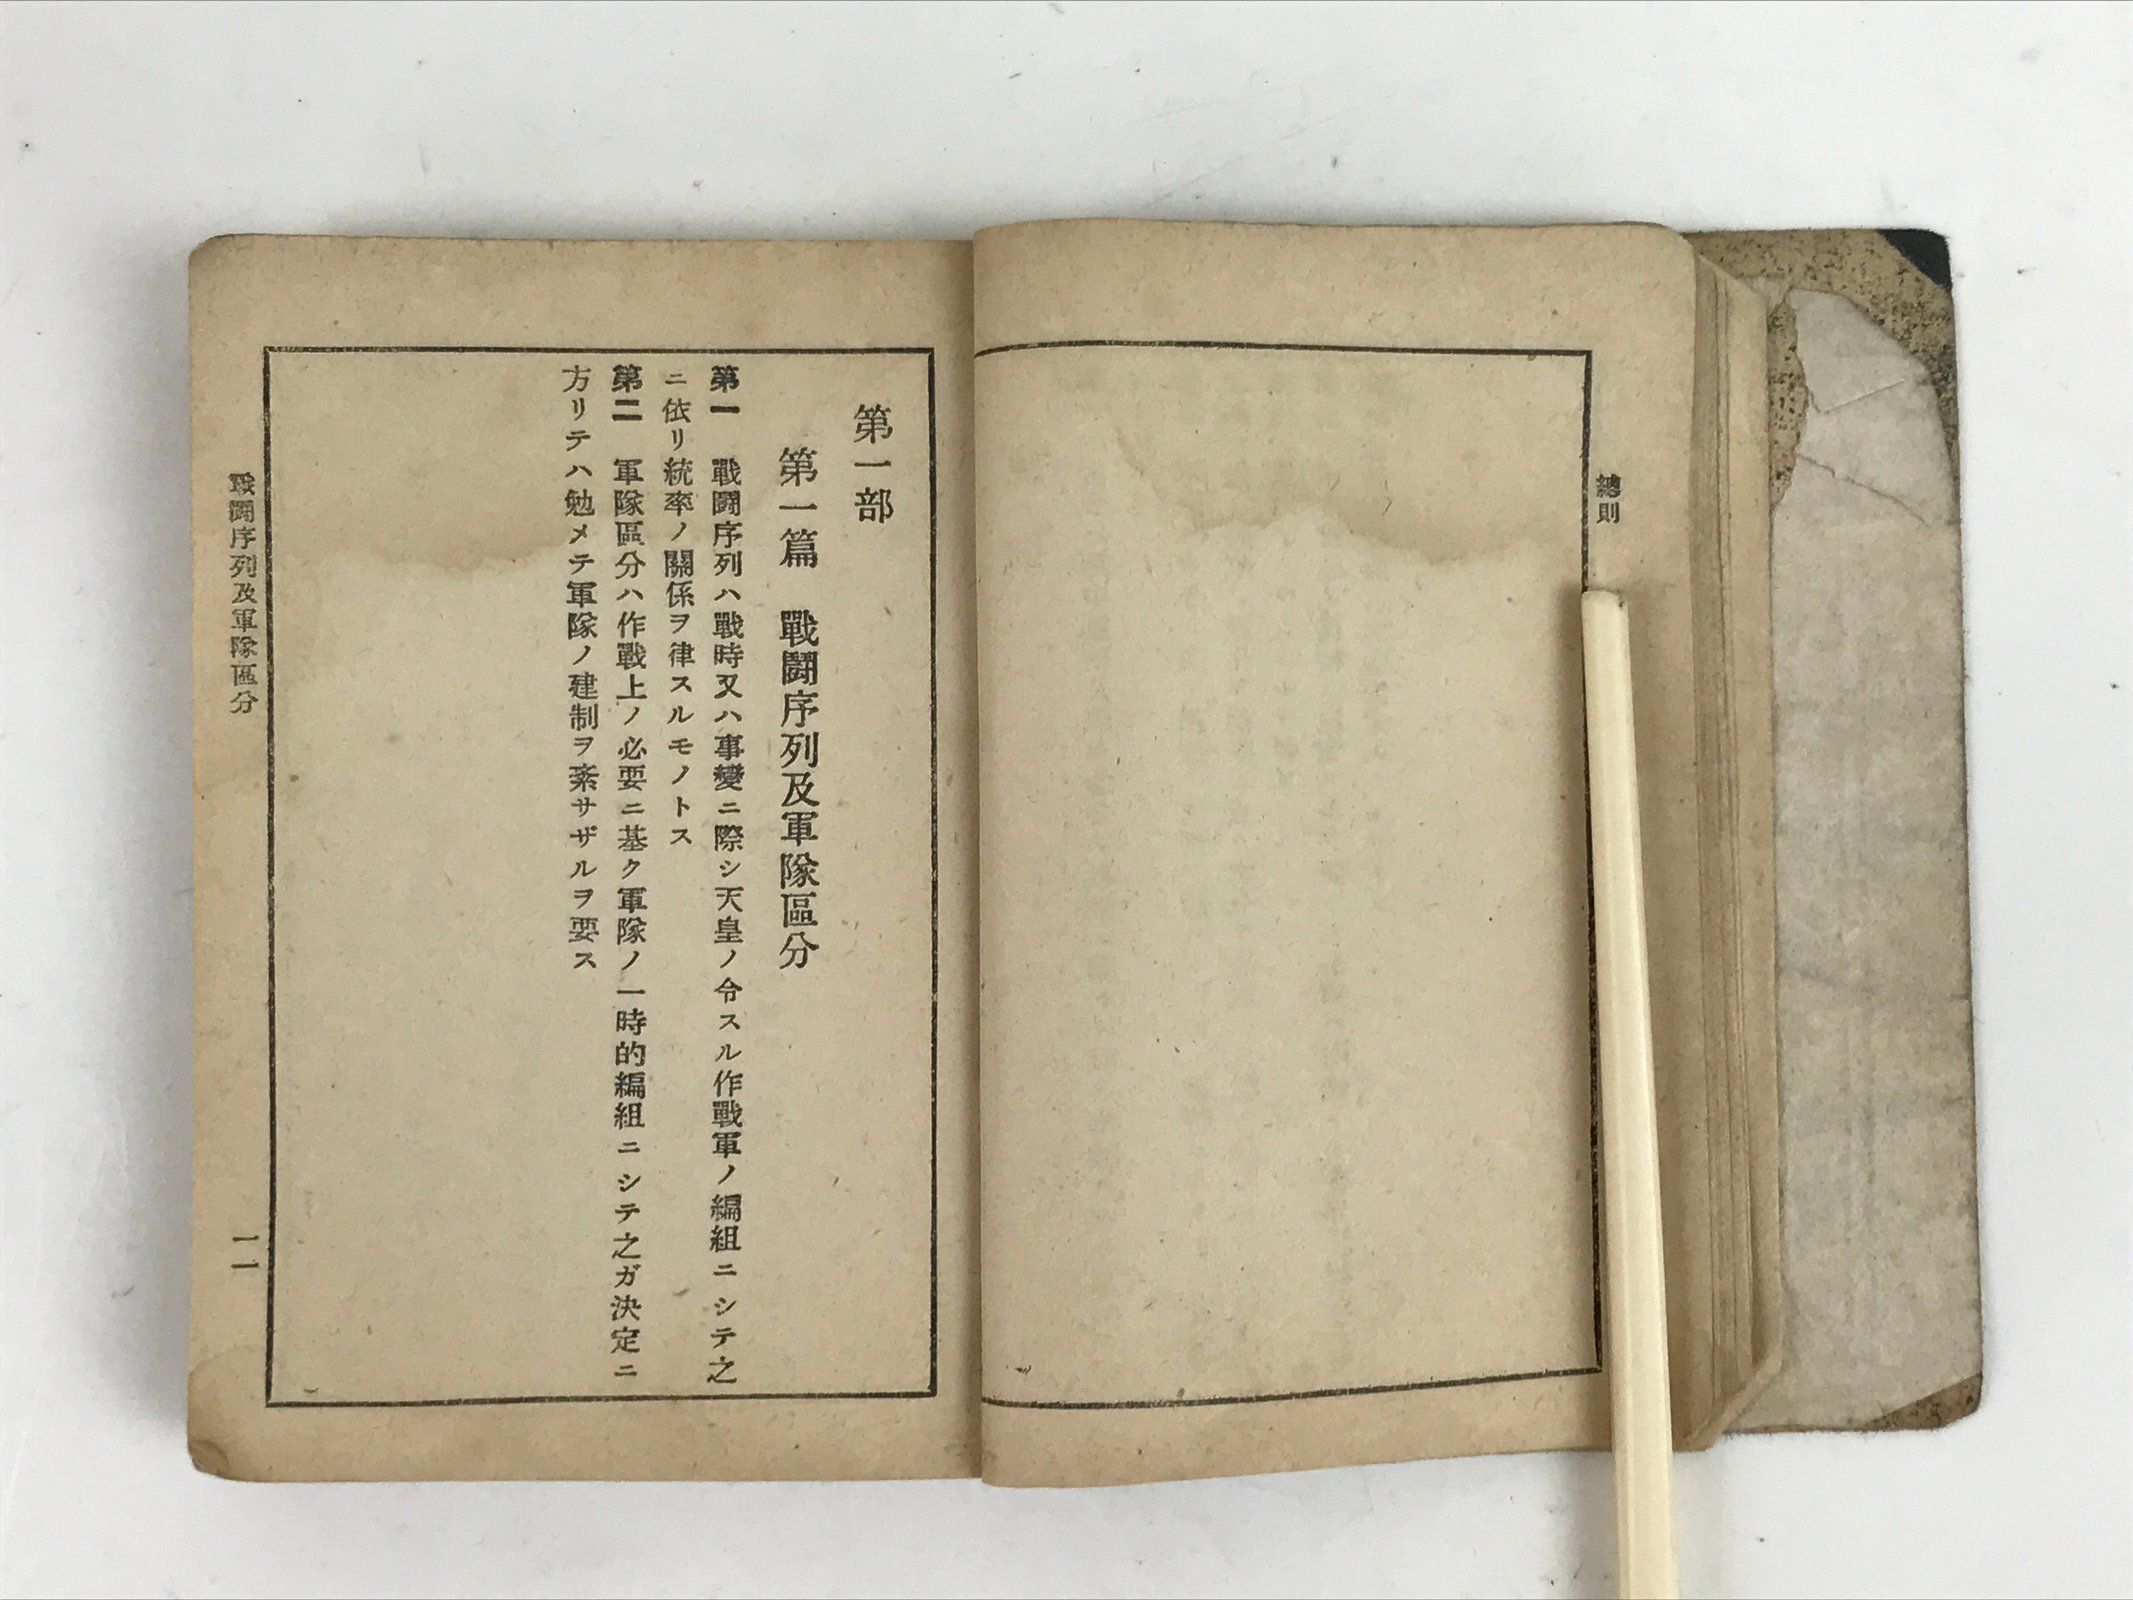 總則
第一部
第一篇　戰鬪序列及軍隊區分
第一　戰鬪序列ハ戰時又ハ事變ニ際シ天皇ノ令スル作戰軍ノ編組ニシテ之
ニ依リ統率ノ關係ヲ律スルモノトス
第二　軍隊區分ハ作戰上ノ必要ニ基ク軍隊ノ一時的編組ニシテ之ガ決定ニ
方リテハ勉メテ軍隊ノ建制ヲ紊サザルヲ要ス
戰鬪序列及軍隊區分
一一